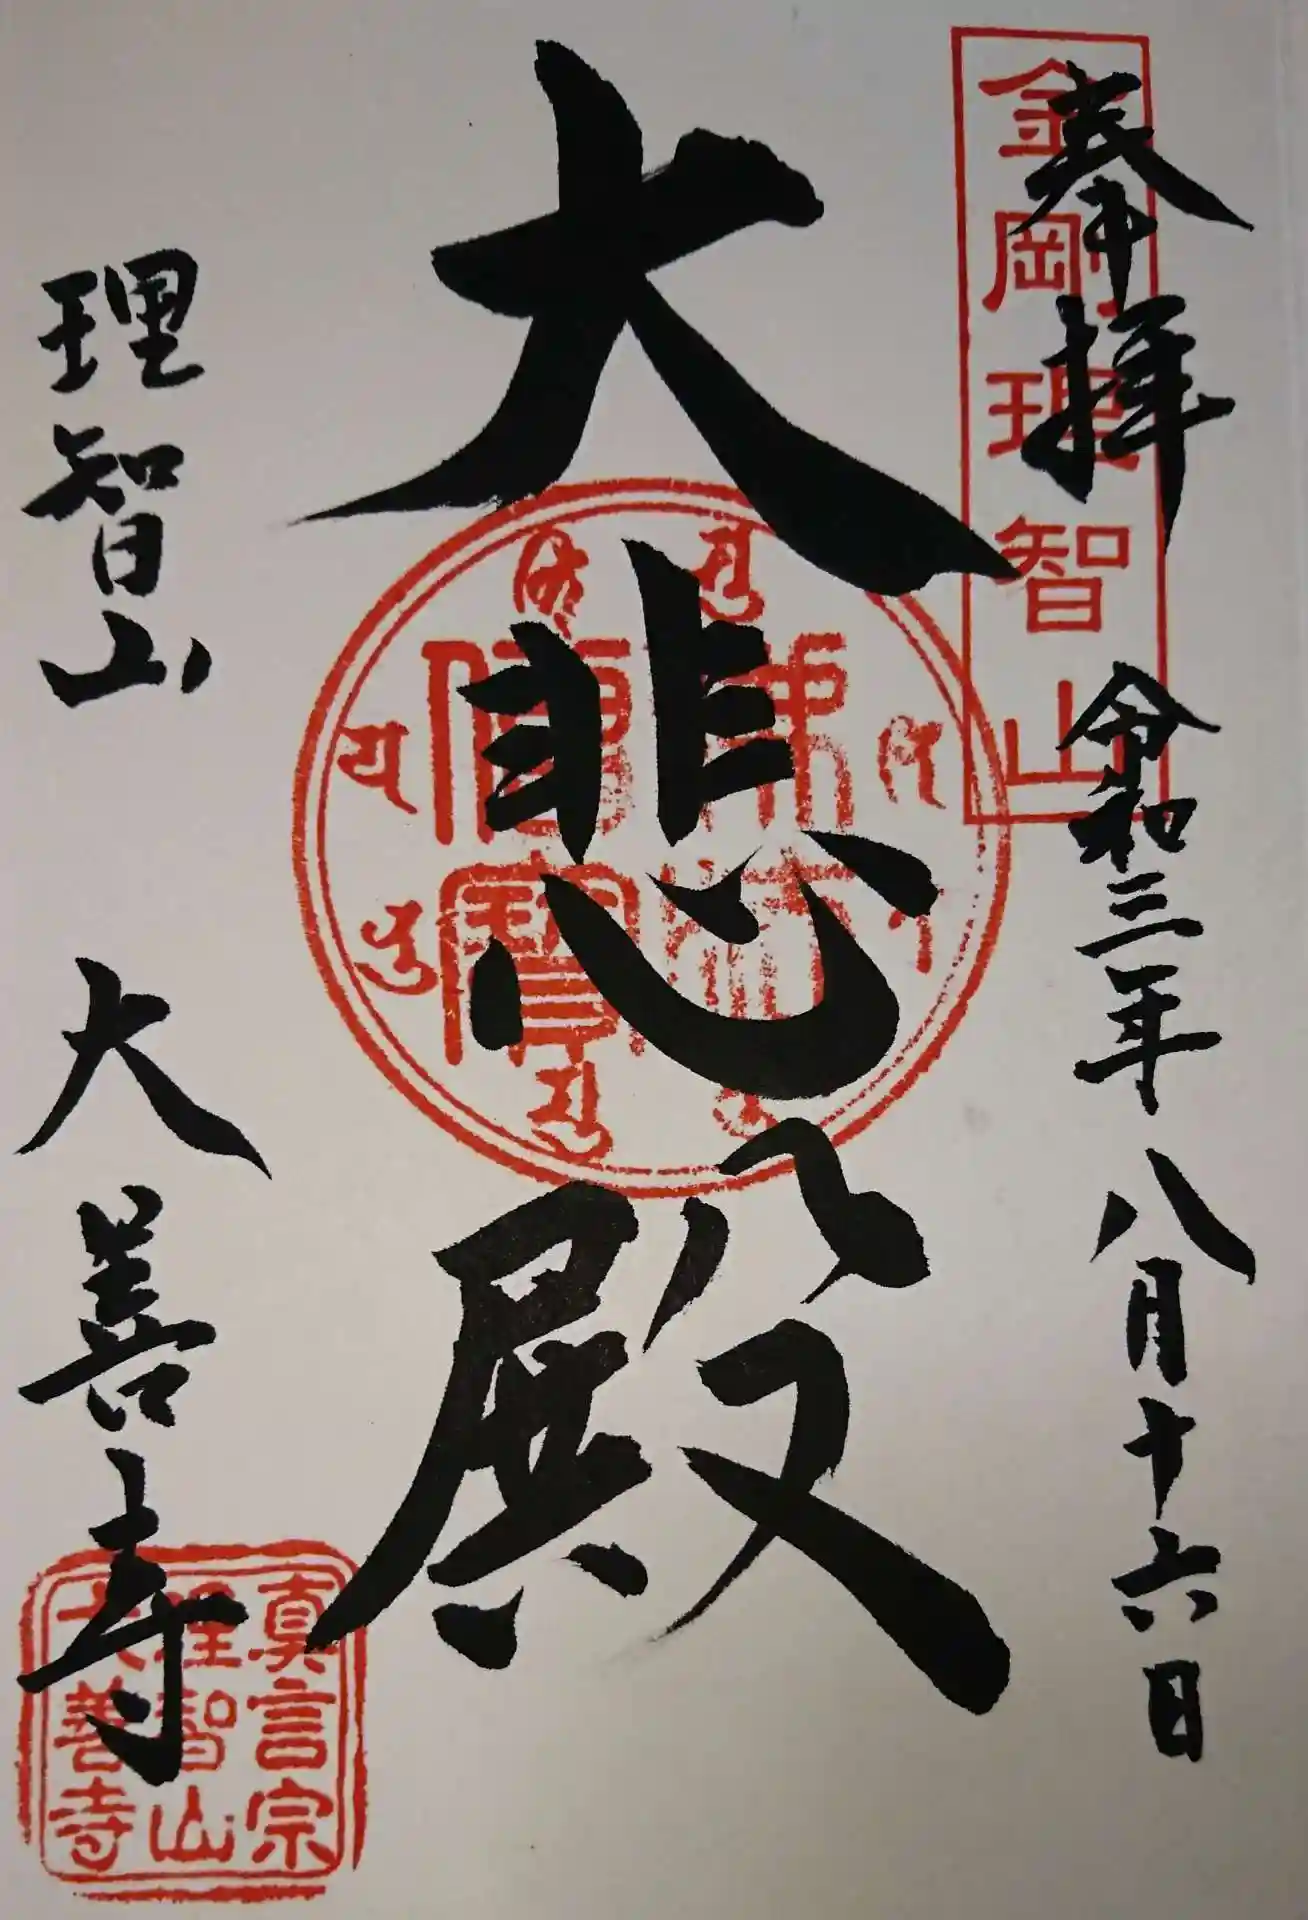 奉拝
令和三年八月十六日
金剛理智山
大悲殿
佛法
僧寶
理智山
大善寺
真言宗
理智山
大善寺